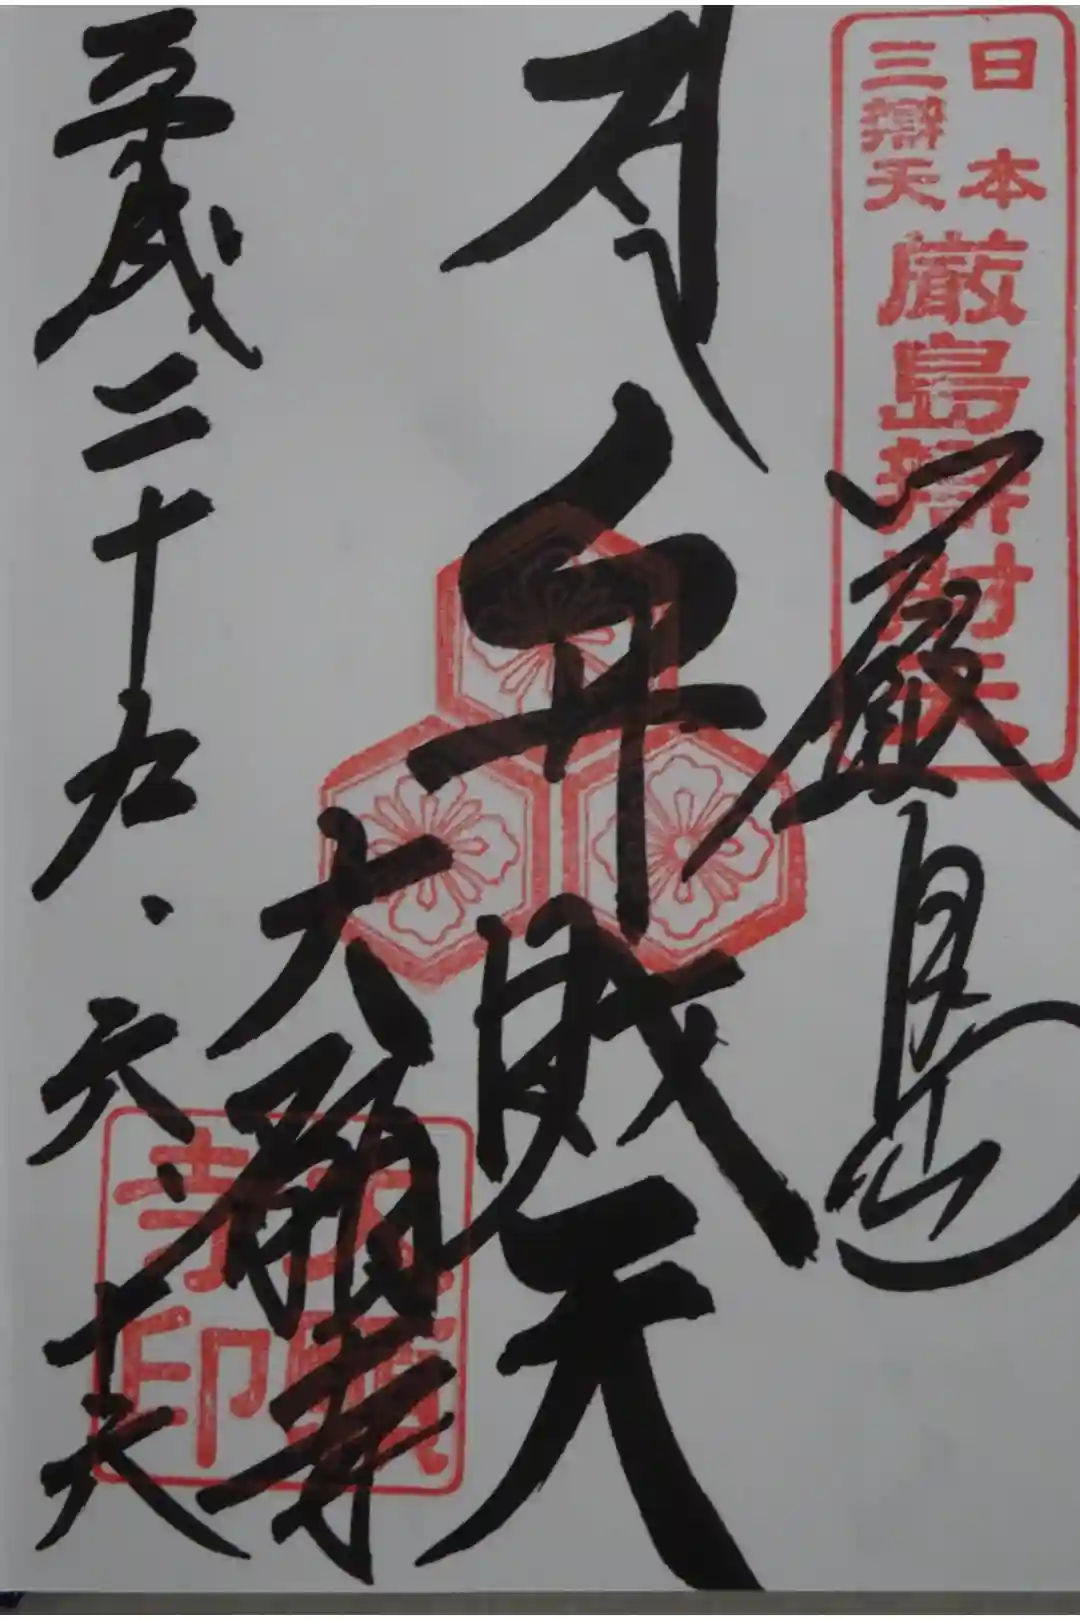 日本
三辯天
厳島辯財天
厳島
弁財天
大願寺
大願
寺印
平成二十九、六、十六